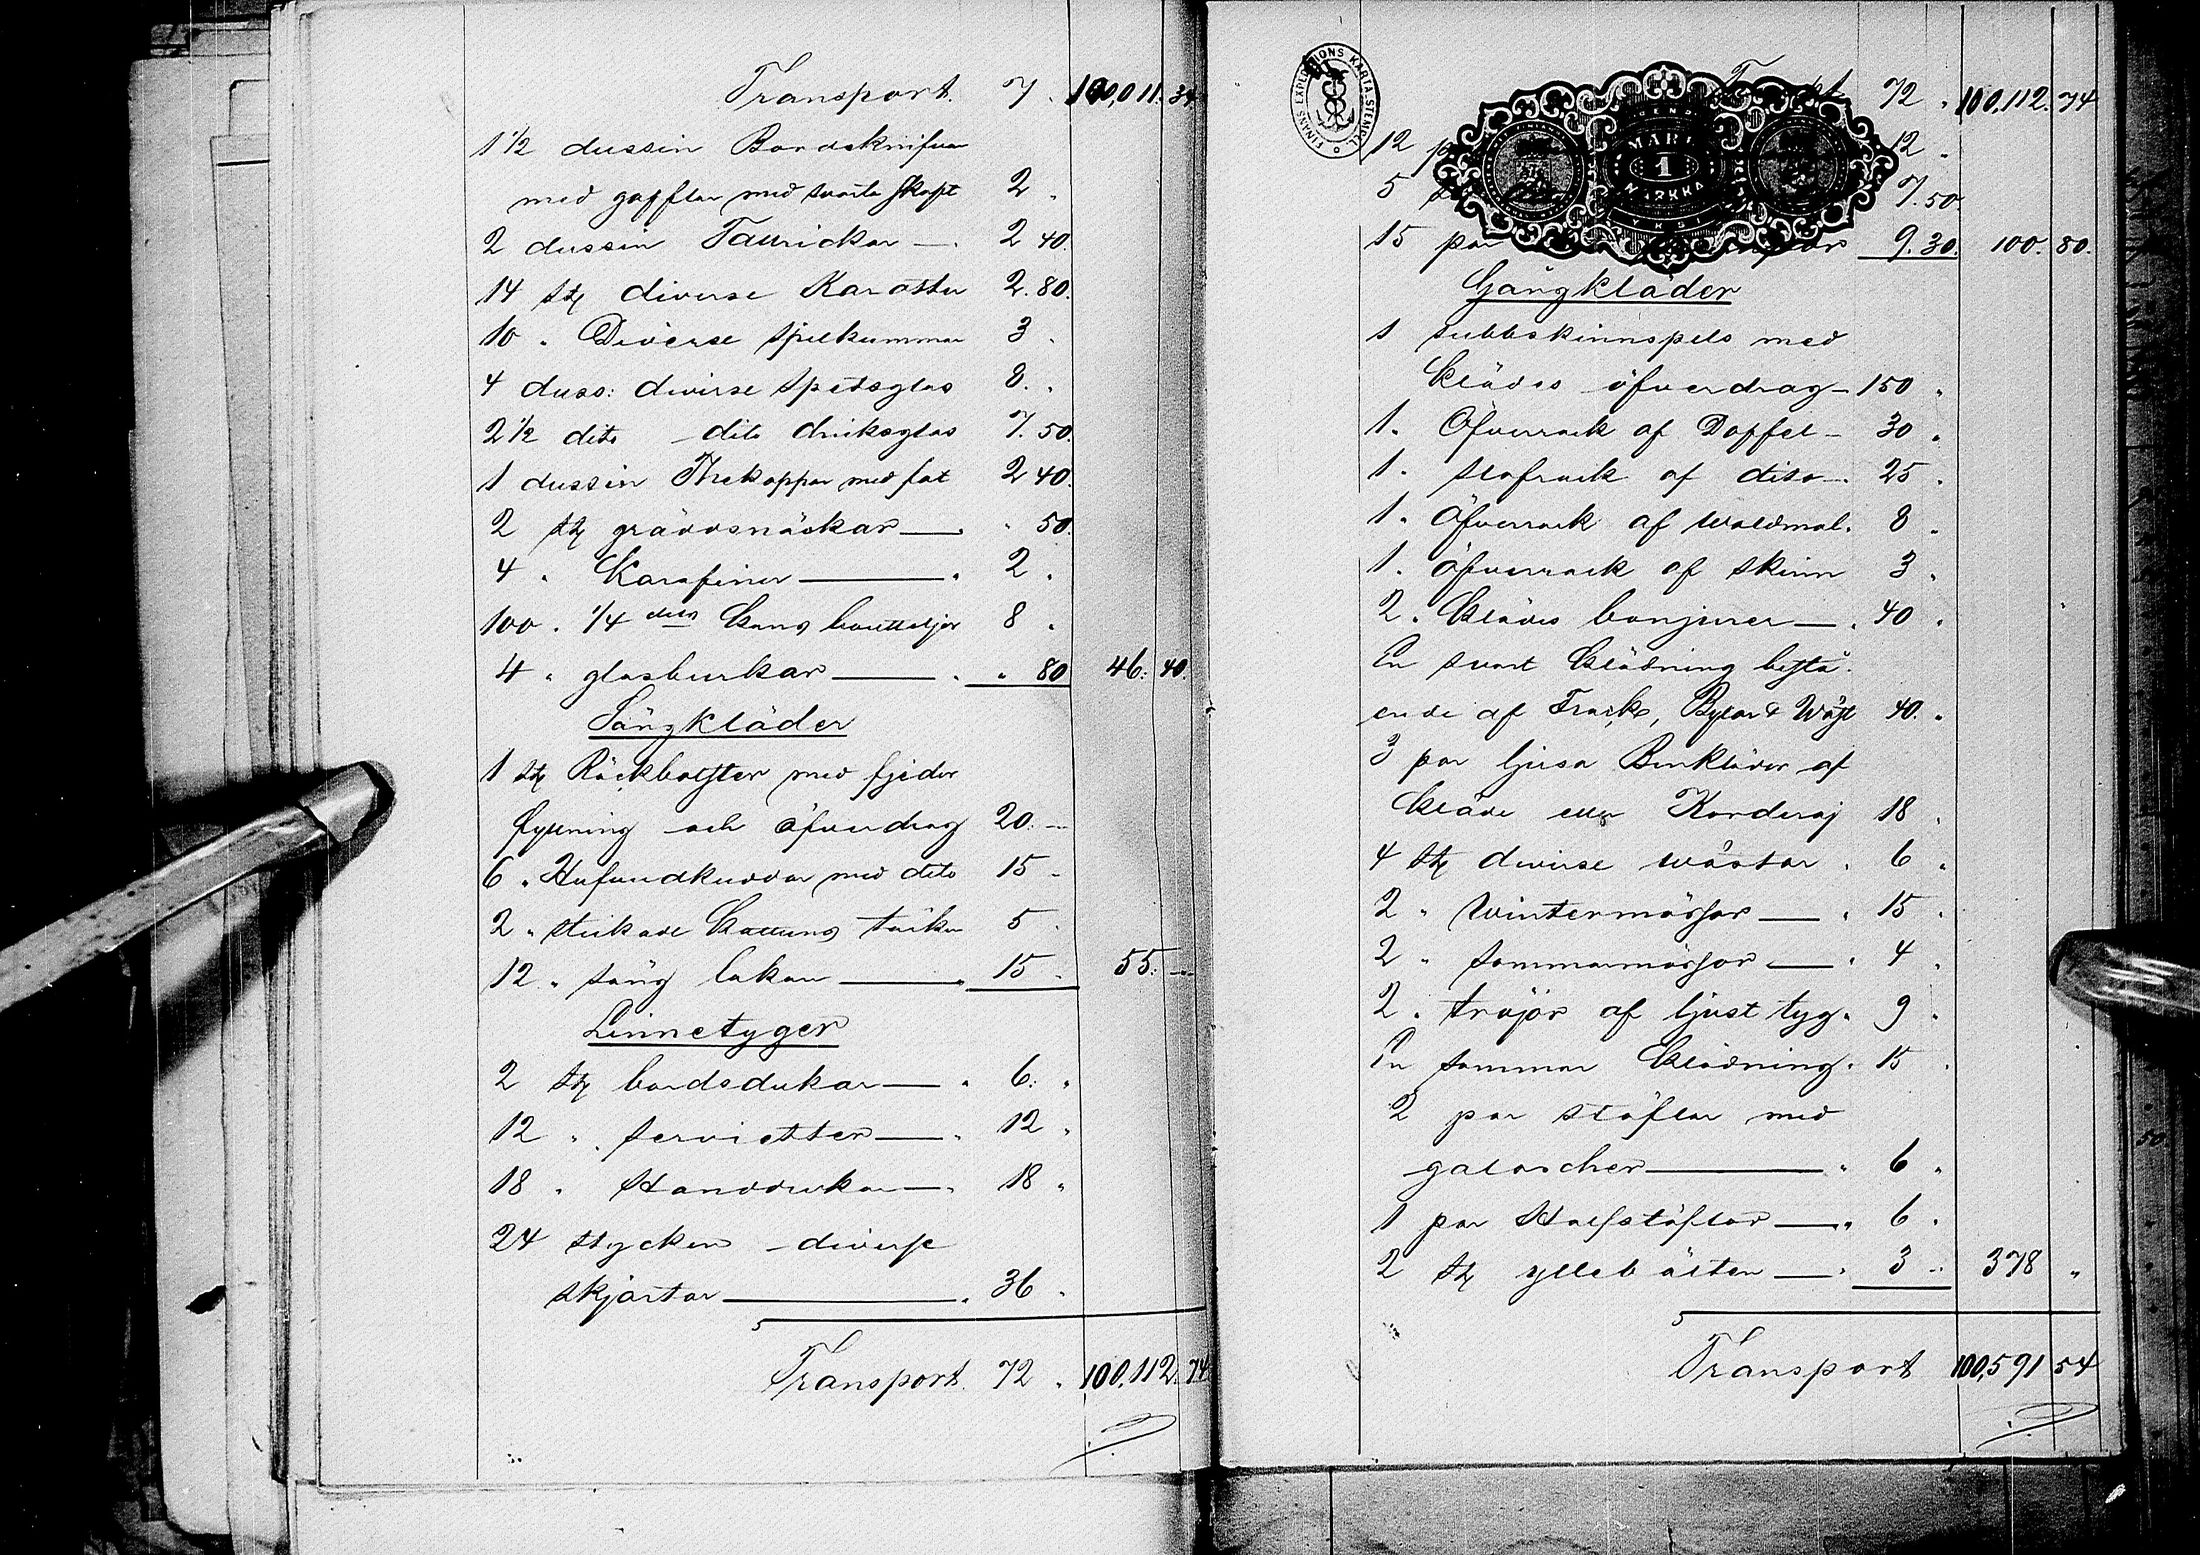 Transport. 7 . 100,011. 34
1 1/2 dussin Bordsknifvar
med gafflar med svarta skaft 2 "
2 dussin Tallrickar — 2 40.
14 st. diverse Karotter 2. 80.
10 " Diverse spilkummar 3 "
4 duss: diverse spetsglas 8. "
2 1/2 dito dito driksglas 7. 50.
1 dussin Thekoppar med fat 2 40.
2 st. gräddsnäckar — " 50.
4 " Karafiner — 2 "
100 " 1/4 dels Kans bouteljer 8 "
4 " glasburkar — " 80 46: 40.
Sängkläder
1 st. Räckbolster med fjeder
fyllning och öfverdrag 20. —
6 " Hufvudkuddar med dito 15 "
2 " stickade Kattuns täcken 5 "
12 " säng lakan — 15 " 55. —
Linnetyger
2 st. bordsdukar — " 6: "
12 " servietter — " 12 "
18 " Handdukar — " 18 "
24 stycken diverse
skjortor — " 36 "
Transport. 72 " 100,112. 74
FINANS EXPEDITIONS KARTA STEMPEL
MARK
1
MARKKA
72 " 100,112. 74
12 12 "
5 7. 50.
15 par 9. 30. 100. 80.
Gångkläder
1 subbskinnspels med
klädes öfverdrag — 150 "
1. Öfverrock af Doffel — 30 "
1. slafrock af dito — 25 "
1. Öfverrock af waldmal. 8 "
1. Öfverrock af skinn 3 "
2. klädes bonjurer — " 40 "
En svart klädning bestå-
ende af Frack, Byxor & Wäst 40. "
3 par ljusa Benkläder af
kläde eller Korderoj 18 "
4 st. diverse wästar " 6 "
2 " Wintermössor — " 15 "
2 " sommarmössor — " 4 "
2 " tröjor af ljust tyg " 9 "
En sommar klädning " 15 "
2 par stöflar med
galoscher — " 6 "
1 par Halfstöflar — " 6 "
2 st. yllebälten — " 3 " 378 "
Transport 100,591 54